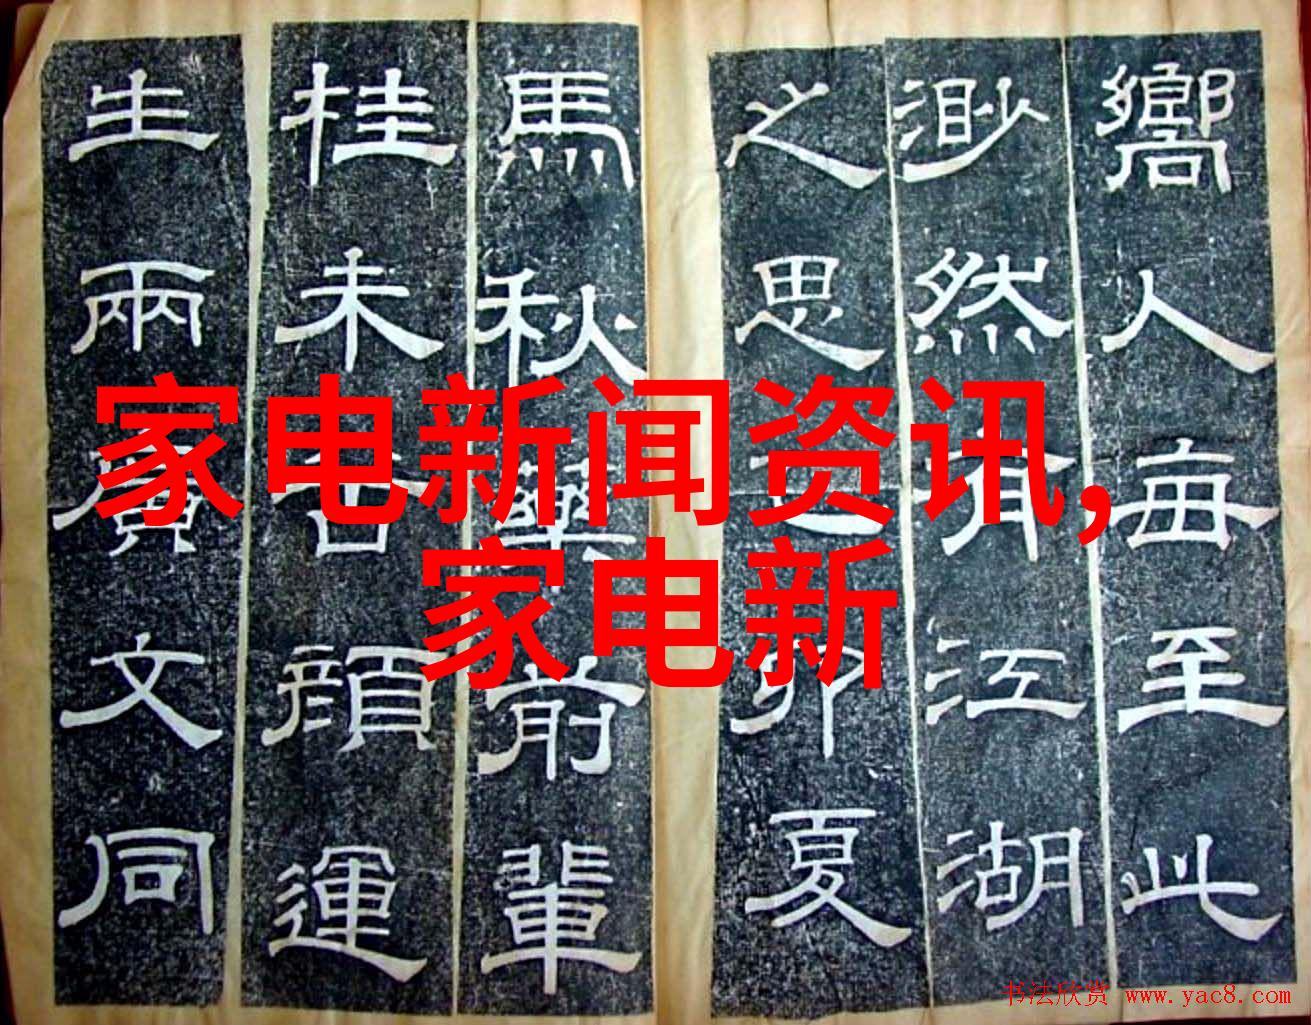 家电新闻资讯,
家电新
嚮人每至此
渺然有江湖
之思卯夏
馬秋藥前輩
桂未顏運
生兩廣文同
书法欣赏 www.yac8.com